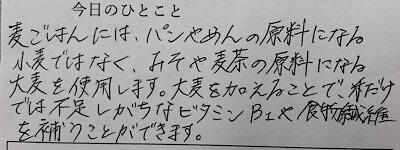 今日のひとこと
麦ごはんには、パンやめんの原料になる
小麦ではなく、みそや麦茶の原料になる
大麦を使用します。大麦を加えることで、米だけ
では不足しがちなビタミンB1や食物繊維
を補うことができます。